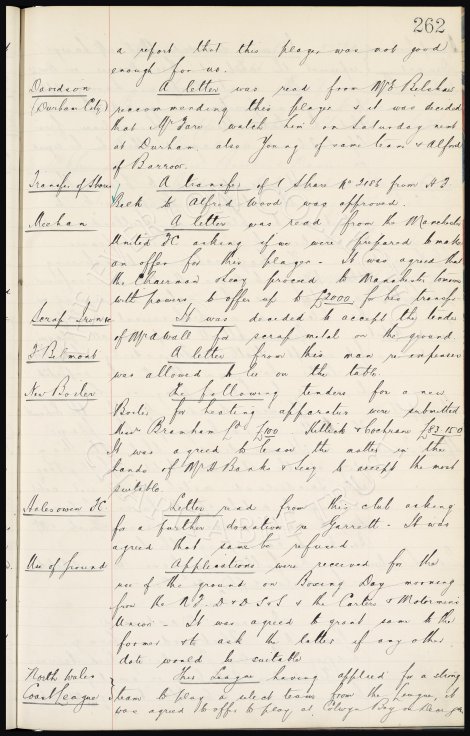 262
a report that this player was not good
enough for us.
Davidson A letter was read from Mr E Belshaw
(Durham City) recommending this player & it was decided
that Mr Farr watch him on Saturday next
at Durham, also Young of same team & Alford
of Barrow.
Transfer of Shares A transfer of 1 Share No 2086 from
to Alfred Wood was approved.
Meehan A letter was read from the Manchester
United FC asking if we were prepared to make
an offer for this player - It was agreed that
the Chairman & Secy proceed to Manchester tomorrow
with powers to offer up to £2000 for his transfer
Scrap Iron It was decided to accept the tender
of Mr A Wall for scrap metal on the ground.
J Belmont A letter from this man re expenses
was allowed to lie on the table.
New Boiler The following tenders for a new
Boiler for heating apparatus were submitted
Messrs Branham Ld £100 Killick & Cochrane £83.15.0
It was agreed to leave the matter in the
hands of Mr Banks & Secy to accept the most
suitable.
Halesowen FC Letter read from this club asking
for a further donation re Garratt - It was
agreed that same be refused.
Use of ground Applications were received for the
use of the ground on Boxing Day morning
from the & the Carters & Motormens
Union - It was agreed to grant same to the
former & to ask the latter if any other
date would be suitable
North Wales This League having applied for a strong
Coast League team to play a select team from the League, it
was agreed to offer to play at Colwyn Bay on